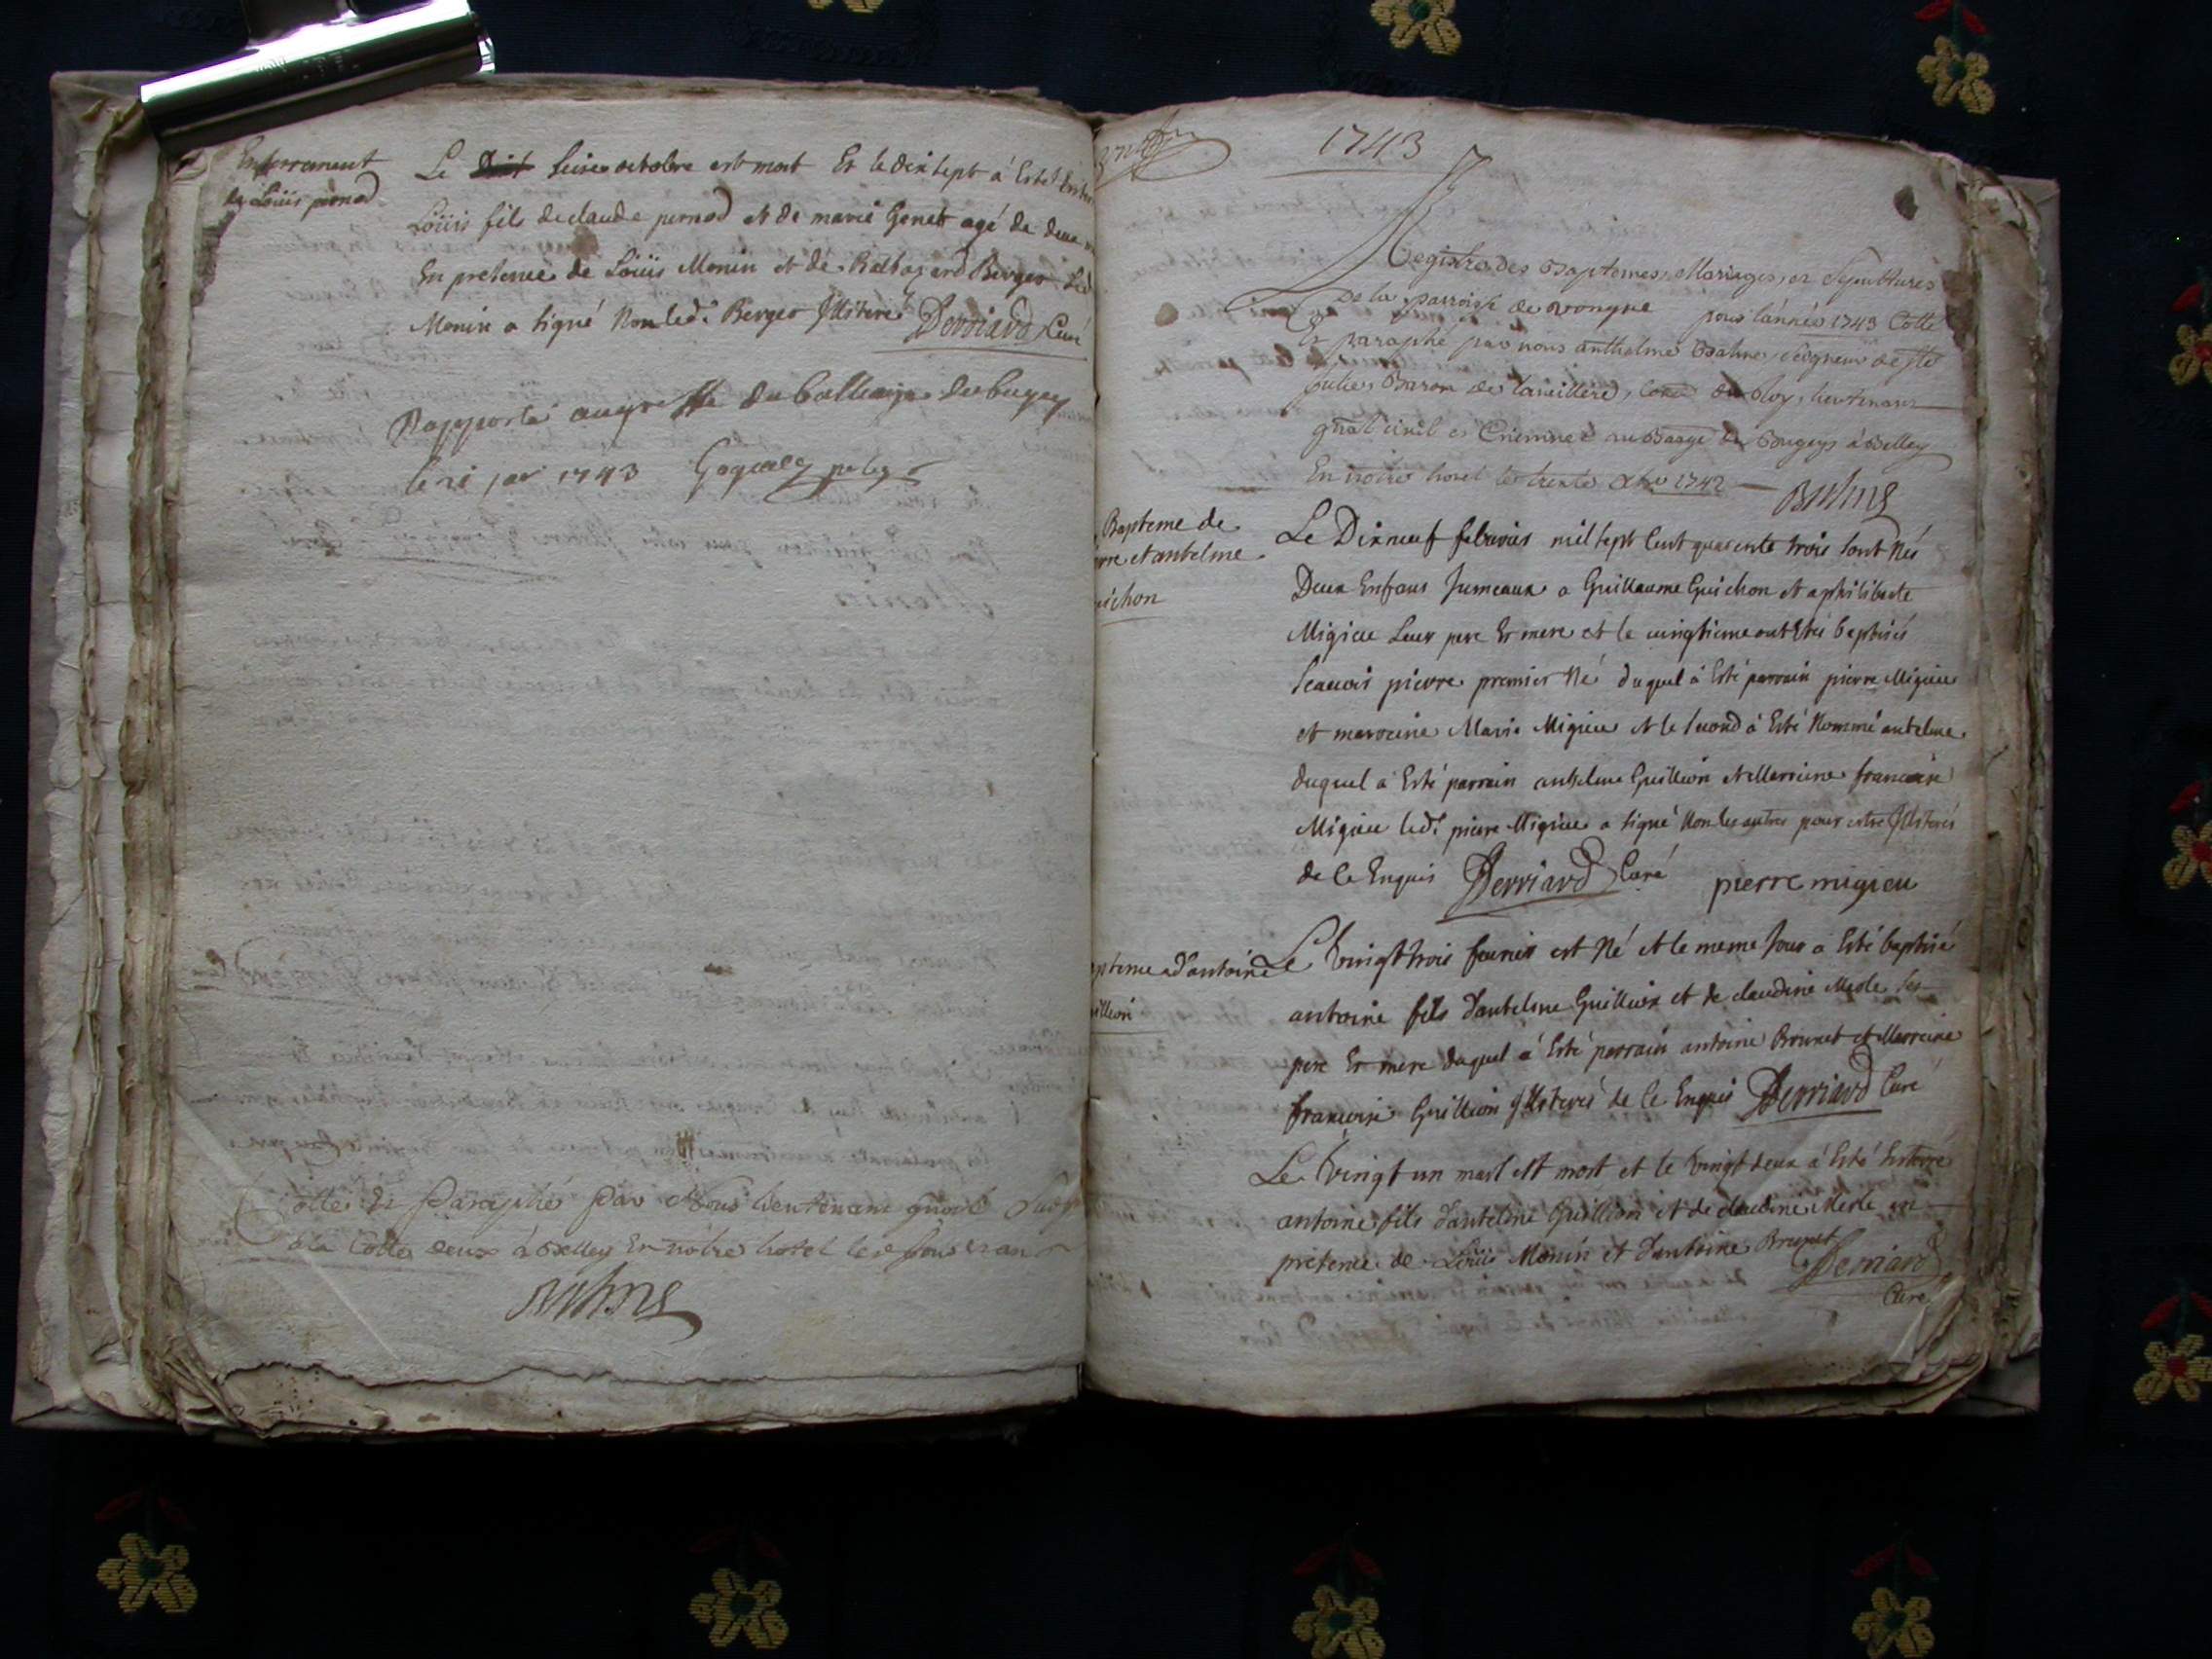 Enterrement
de Loüis pernod
Le seise octobre est mort Et le dix sept à Esté
Loüis fils de claude pernod et de marie Genet agé de deux
En presence de Loüis Monin et de Baltazard Berger Led
Monin a signé Non led. Berger Illiteré Derriard Curé
Rapporté au greffe du balliage du bugey
le 1743
Cottés et Paraphé Par Nous lieutenant
à la Cotte deux à Belley En nôtre hotel
Balme
1743
Registre des Baptemes, Mariages, et Sepultures
De la parroisse de vongne pour l'année 1743 Cotté
Et paraphé par nous anthelme Balme, seigneur de Ste
julie, Baron de Roy, lieutenant
gñal civil et Criminel au Baage du Bugey à Belley
En notre hotel le trente xbre 1742
Balme
Bapteme de
rre et antelme
ichon
Le Dixneuf febvrier mil sept Cent quarente trois sont Nés
Deux Enfans Jumeaux a Guillaume Guichon et a philiberte
Migieu Leur pere Et mere et le vingtieme ont Etés baptisés
Scauoir pierre premier Né duquel à Esté parrain pierre Migieu
et marreine Marie Migieu et le second à Esté Nommé antelme
duquel à Esté parrain antelme Guillion et Marreine francoise
Migieu led. pierre Migieu a signé Non les autres pour estre Illiterés
de ce Enquis Derriard Curé pierre migieu
pteme d'antoine
illion
Le Vingt trois feurier est Né et le meme Jour a Esté baptisé
antoine fils d'antelme Guillion et de claudine Merle ses
pere Et mere duquel à Esté parrain antoine Brunet et Marreine
francoise Guillion Illiterés de ce Enquis Derriard Curé
Le Vingt un mars est mort et le Vingt deux à Esté Enterré
antoine fils d'antelme Guillion et de claudine Merle en
presence de Loüis Monin et d'antoine Brunet Derriard
Curé